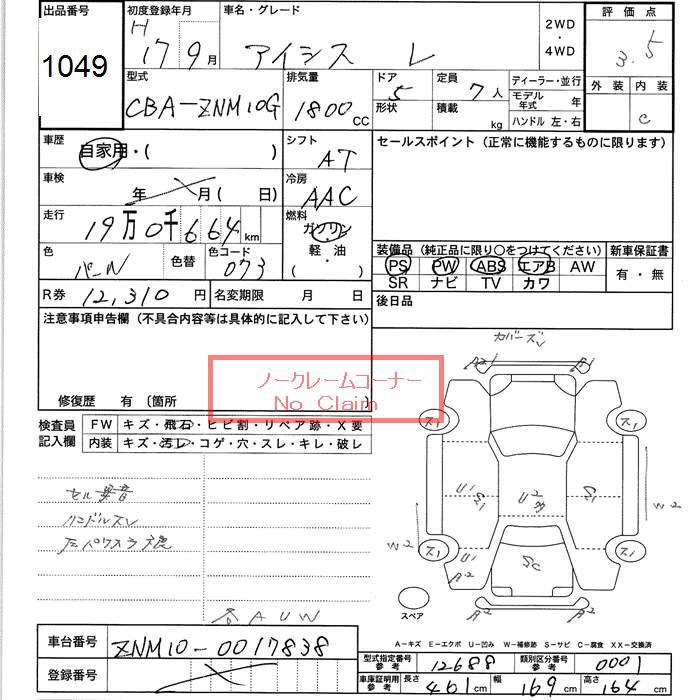 出品番号 初度登録年月 車名・グレード 2WD・4WD 評価点
1049 H 17 9月 アイシス L 3.5
型式 排気量 ドア 定員 ディーラー・並行 外装 内装
CBA-ZNM10G 1800 CC 5 7人 モデル年式 年 C
形状 積載 kg ハンドル 左・右
車歴 シフト セールスポイント (正常に機能するものに限ります)
自家用・( ) AT
車検 冷房
年 月 ( 日) AAC
走行 燃料
19万0千664km ガソリン
色 色替 色コード 軽・油 装備品 (純正品に限り○をつけてください) 新車保証書
パール 073 ( ) PS PW ABS エアB AW 有・無
SR ナビ TV カワ
R券 12,310円 名変期限 月 日 後日品
注意事項申告欄 (不具合内容等は具体的に記入して下さい)
カバーズレ
ノークレームコーナー
No Claim
修復歴 有 〔箇所
検査員記入欄 FW キズ・飛石・ヒビ割・リペア跡・X要
内装 キズ・汚レ・コゲ・穴・スレ・キレ・破レ
A2 A1
ス1 ス1
セル異音
ハンドルスレ
U1 S1 U2 S1 W2
W2 ス1 U1 A2 SC ス1
スペア A2 A2
AUW
A-キズ E-エクボ U-凹み W-補修跡 S-サビ C-腐食 XX-交換済
車台番号 ZNM10-0017838
型式指定番号 参考 12688 類別区分番号 参考 0001
登録番号
車庫証明用 参考 長さ 461cm 幅 169cm 高さ 164cm